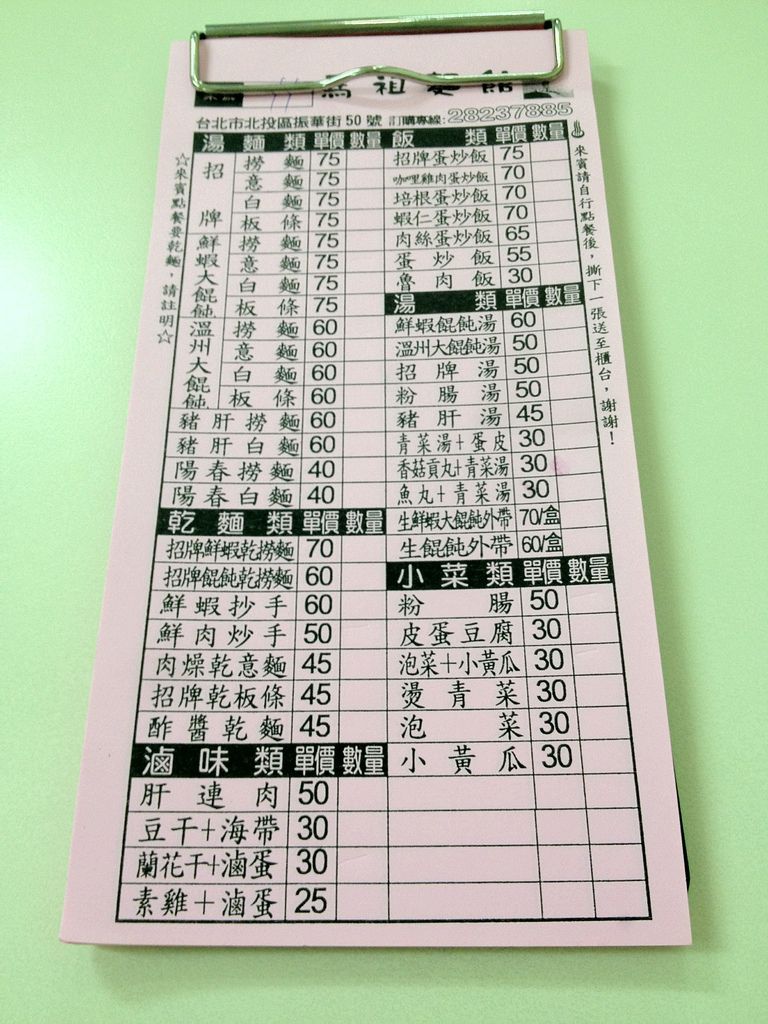 馬祖麵館
台北市北投區振華街50號 訂購專線:28237885
☆來賓點餐要乾麵，請註明☆
湯麵類 單價 數量
招牌 撈麵 75
意麵 75
白麵 75
板條 75
鮮蝦大餛飩 撈麵 75
意麵 75
白麵 75
板條 75
溫州大餛飩 撈麵 60
意麵 60
白麵 60
板條 60
豬肝撈麵 60
豬肝白麵 60
陽春撈麵 40
陽春白麵 40
乾麵類 單價 數量
招牌鮮蝦乾撈麵 70
招牌餛飩乾撈麵 60
鮮蝦抄手 60
鮮肉炒手 50
肉燥乾意麵 45
招牌乾板條 45
酢醬乾麵 45
滷味類 單價 數量
肝連肉 50
豆干+海帶 30
蘭花干+滷蛋 30
素雞+滷蛋 25
飯類 單價 數量
招牌蛋炒飯 75
咖哩雞肉蛋炒飯 70
培根蛋炒飯 70
蝦仁蛋炒飯 70
肉絲蛋炒飯 65
蛋炒飯 55
魯肉飯 30
湯類 單價 數量
鮮蝦餛飩湯 60
溫州大餛飩湯 50
招牌湯 50
粉腸湯 50
豬肝湯 45
青菜湯+蛋皮 30
香菇貢丸+青菜湯 30
魚丸+青菜湯 30
生鮮蝦大餛飩外帶 70/盒
生餛飩外帶 60/盒
小菜類 單價 數量
粉腸 50
皮蛋豆腐 30
泡菜+小黃瓜 30
燙青菜 30
泡菜 30
小黃瓜 30
來賓請自行點餐後，撕下一張送至櫃台，謝謝！